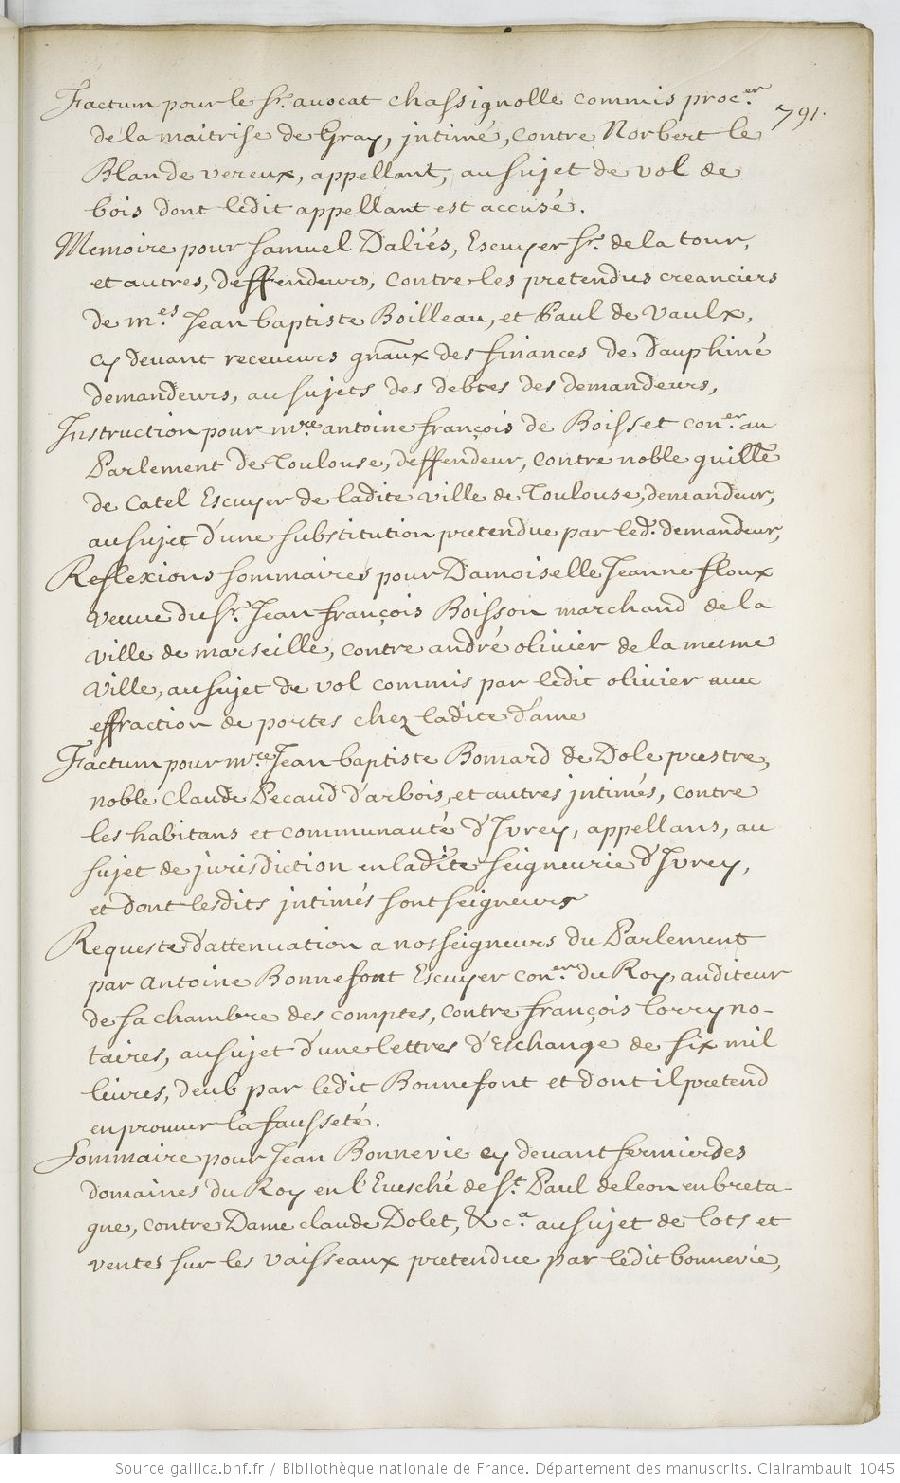 Factum pour le Sr. avocat chassignolle commis proc.er
791.
de la maitrise de Gray, jntimé, contre Norbert le
Blan de vereux, appellant, au sujet de vol de
bois dont ledit appellant est accusé.
Memoire pour Samuel Daliés, Escuyer Sr. de la tour,
et autres, deffendeurs, contre les pretendus creanciers
de m.es Jean baptiste Boilleau, et Paul de Vaulx,
cy devant receveurs gnaux des finances de Dauphiné
demandeurs, au sujets des debtes des demandeurs,
Jnstruction pour m.re antoine françois de Boisset con.er au
Parlement de Toulouse, deffendeur, contre noble guille
de Catel Escuyer de ladite ville de Toulouse, demandeur,
au sujet d'une substitution pretendue par led. demandeur,
Reflexions sommaires pour Damoiselle Jeanne floux
veuve du Sr. Jean françois Boisson marchand de la
ville de marseille, contre andré olivier de la mesme
ville, au sujet de vol commis par ledit olivier avec
effraction de portes chez ladite dame
Factum pour m.re Jean baptiste Bomard de Dole prestre,
noble Claude Pecaud d'arbois, et autres jntimés, contre
les habitans et communauté d'Jvrey, appellans, au
sujet de jurisdiction en ladite seigneurie d'Jvrey,
et dont lesdits jntimés sont seigneurs
Requeste d'attenuation a nosseigneurs du Parlement
par Antoine Bonnefont Escuyer con.er du Roy, auditeur
de sa chambre des comptes, contre françois Lorry no-
taires, au sujet d'une lettres d'Eschange de six mil
livres, deub par ledit Bonnefont et dont il pretend
en prouver la fausseté.
Sommaire pour Jean Bonnevie cy devant fermier des
domaines du Roy en l'Evesché de St. Paul de leon en breta-
gne, contre Dame claude Dolet, &c.a au sujet de lots et
ventes sur les vaisseaux pretendue par ledit bonnevie,
Source gallica.bnf.fr / Bibliothèque nationale de France. Département des manuscrits. Clairambault 1045